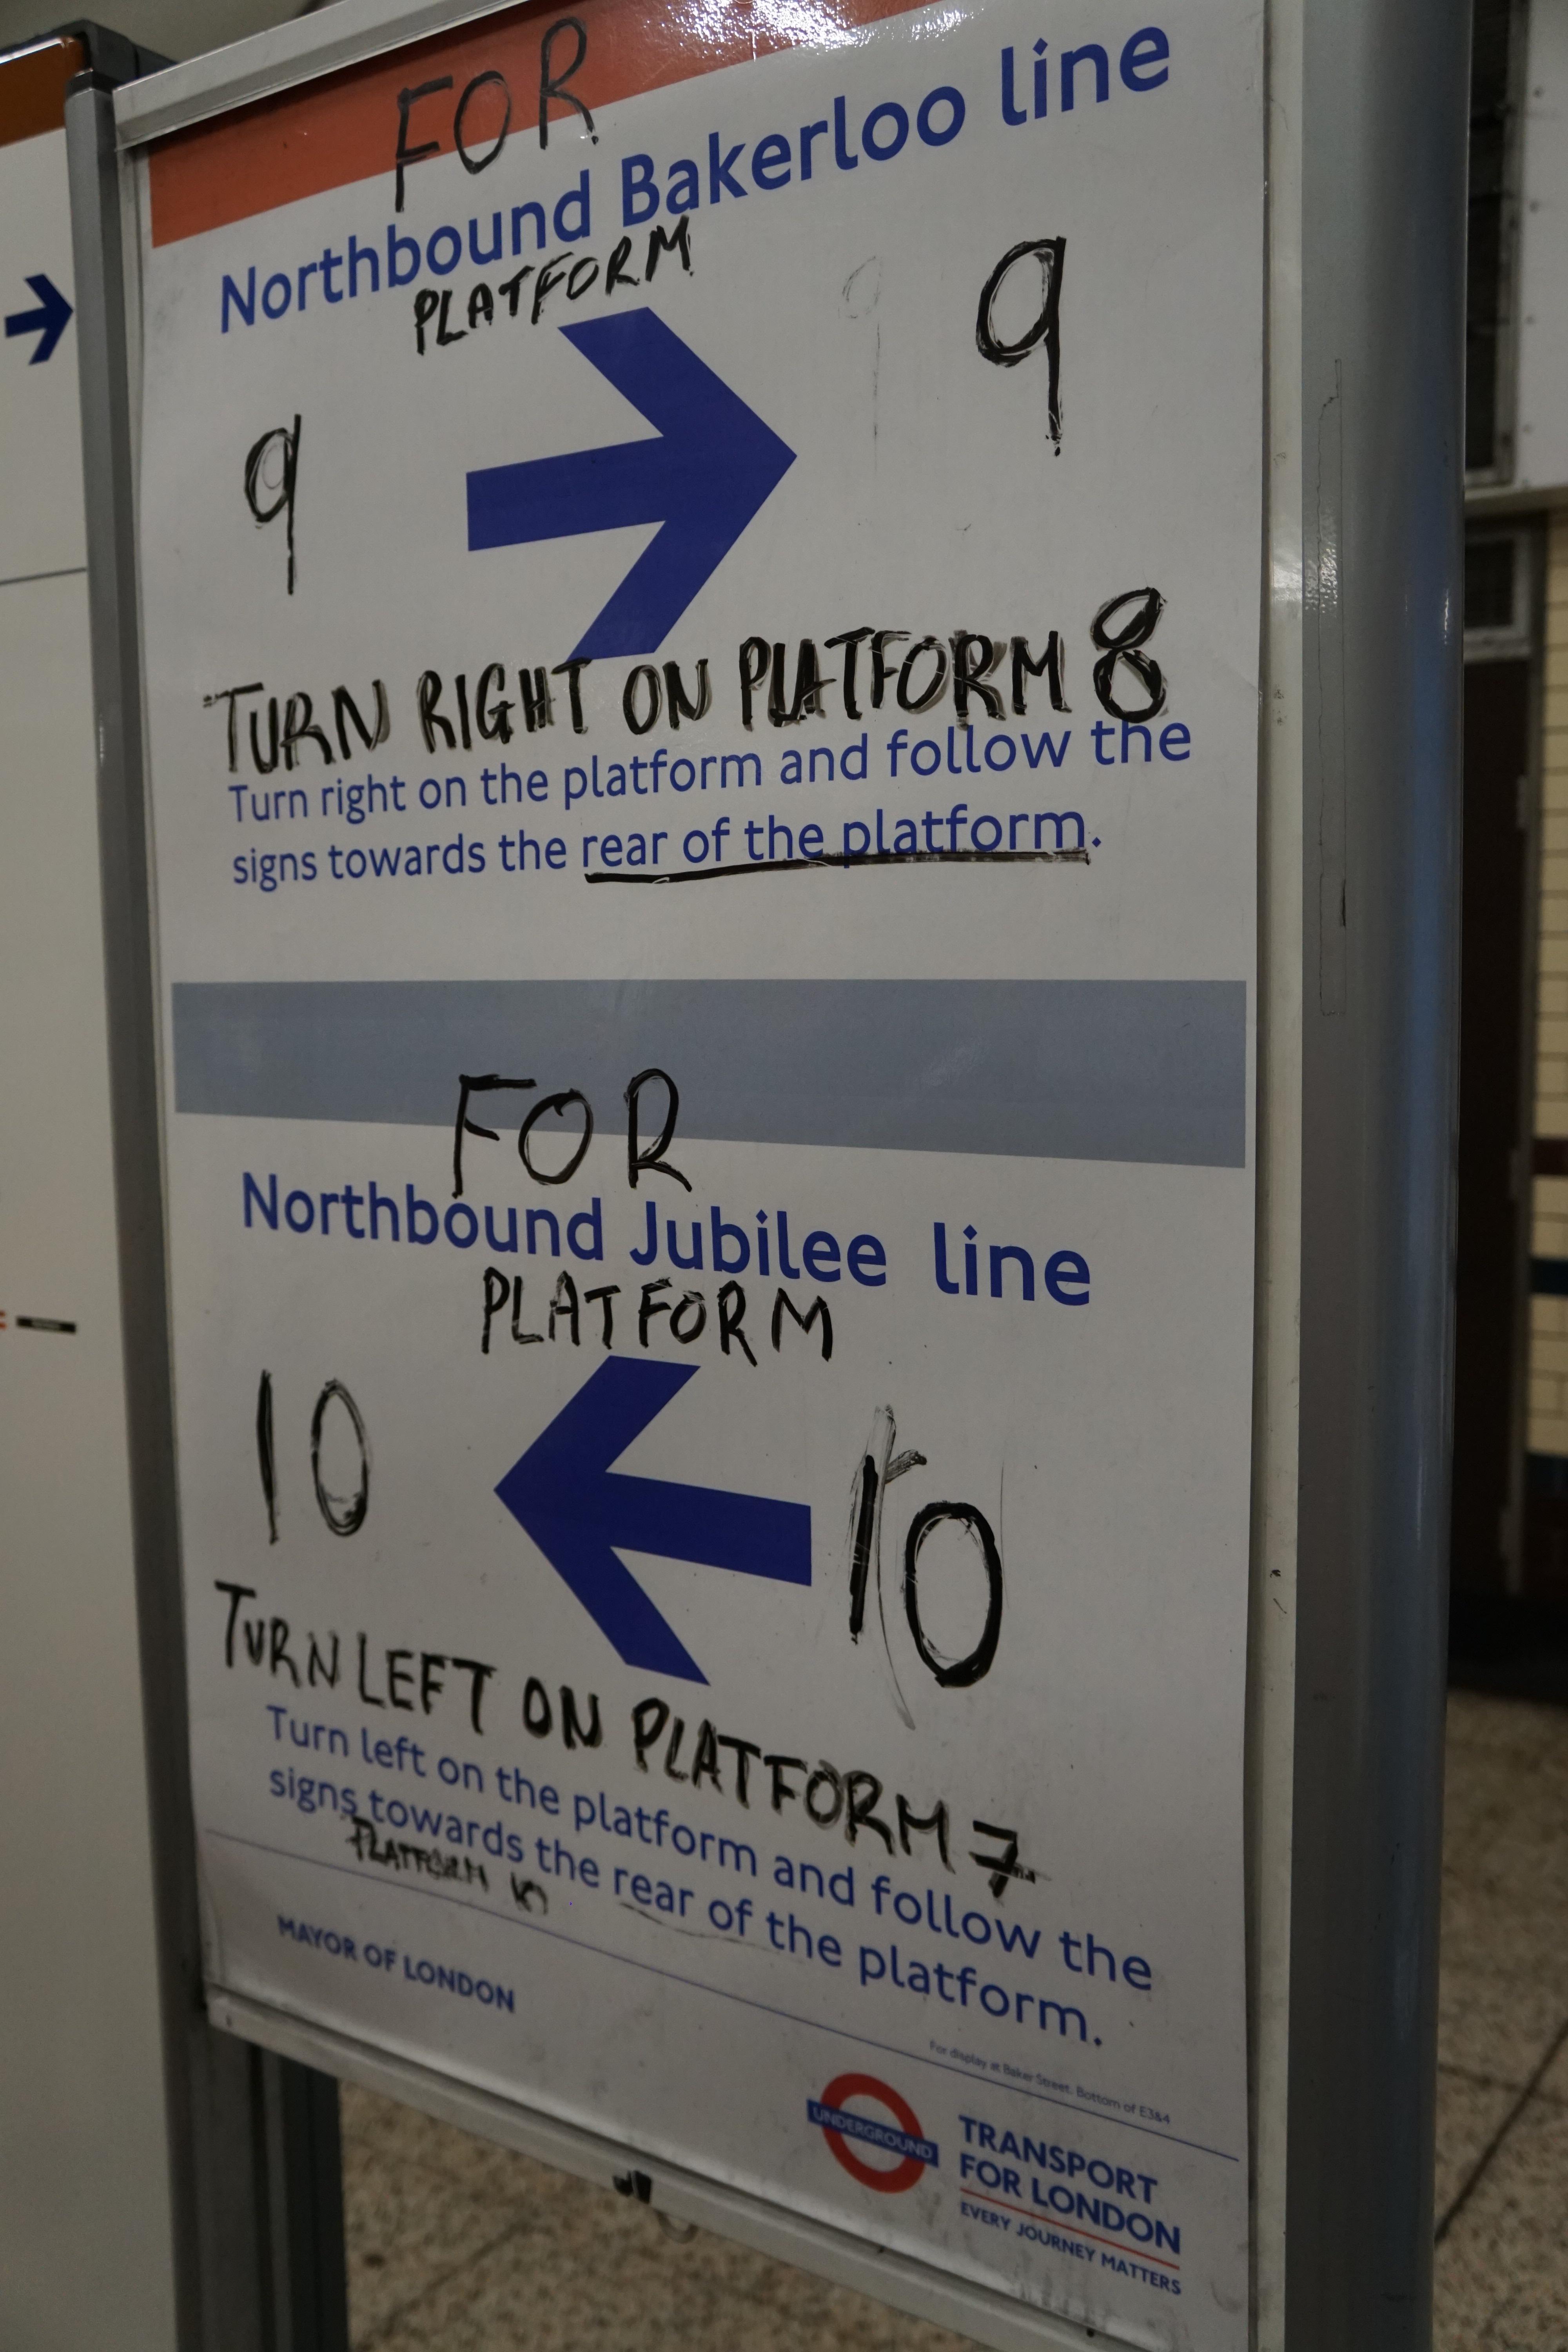 FOR
Northbound Bakerloo line
PLATFORM
9
9
9
TURN RIGHT ON PLATFORM 8
Turn right on the platform and follow the
signs towards the rear of the platform.
FOR
Northbound Jubilee line
PLATFORM
10
10
TURN LEFT ON PLATFORM 7
Turn left on the platform and follow the
signs towards the rear of the platform.
PLATFORM 10
MAYOR OF LONDON
For display at Baker Street. Bottom of E3&4
UNDERGROUND
TRANSPORT
FOR LONDON
EVERY JOURNEY MATTERS